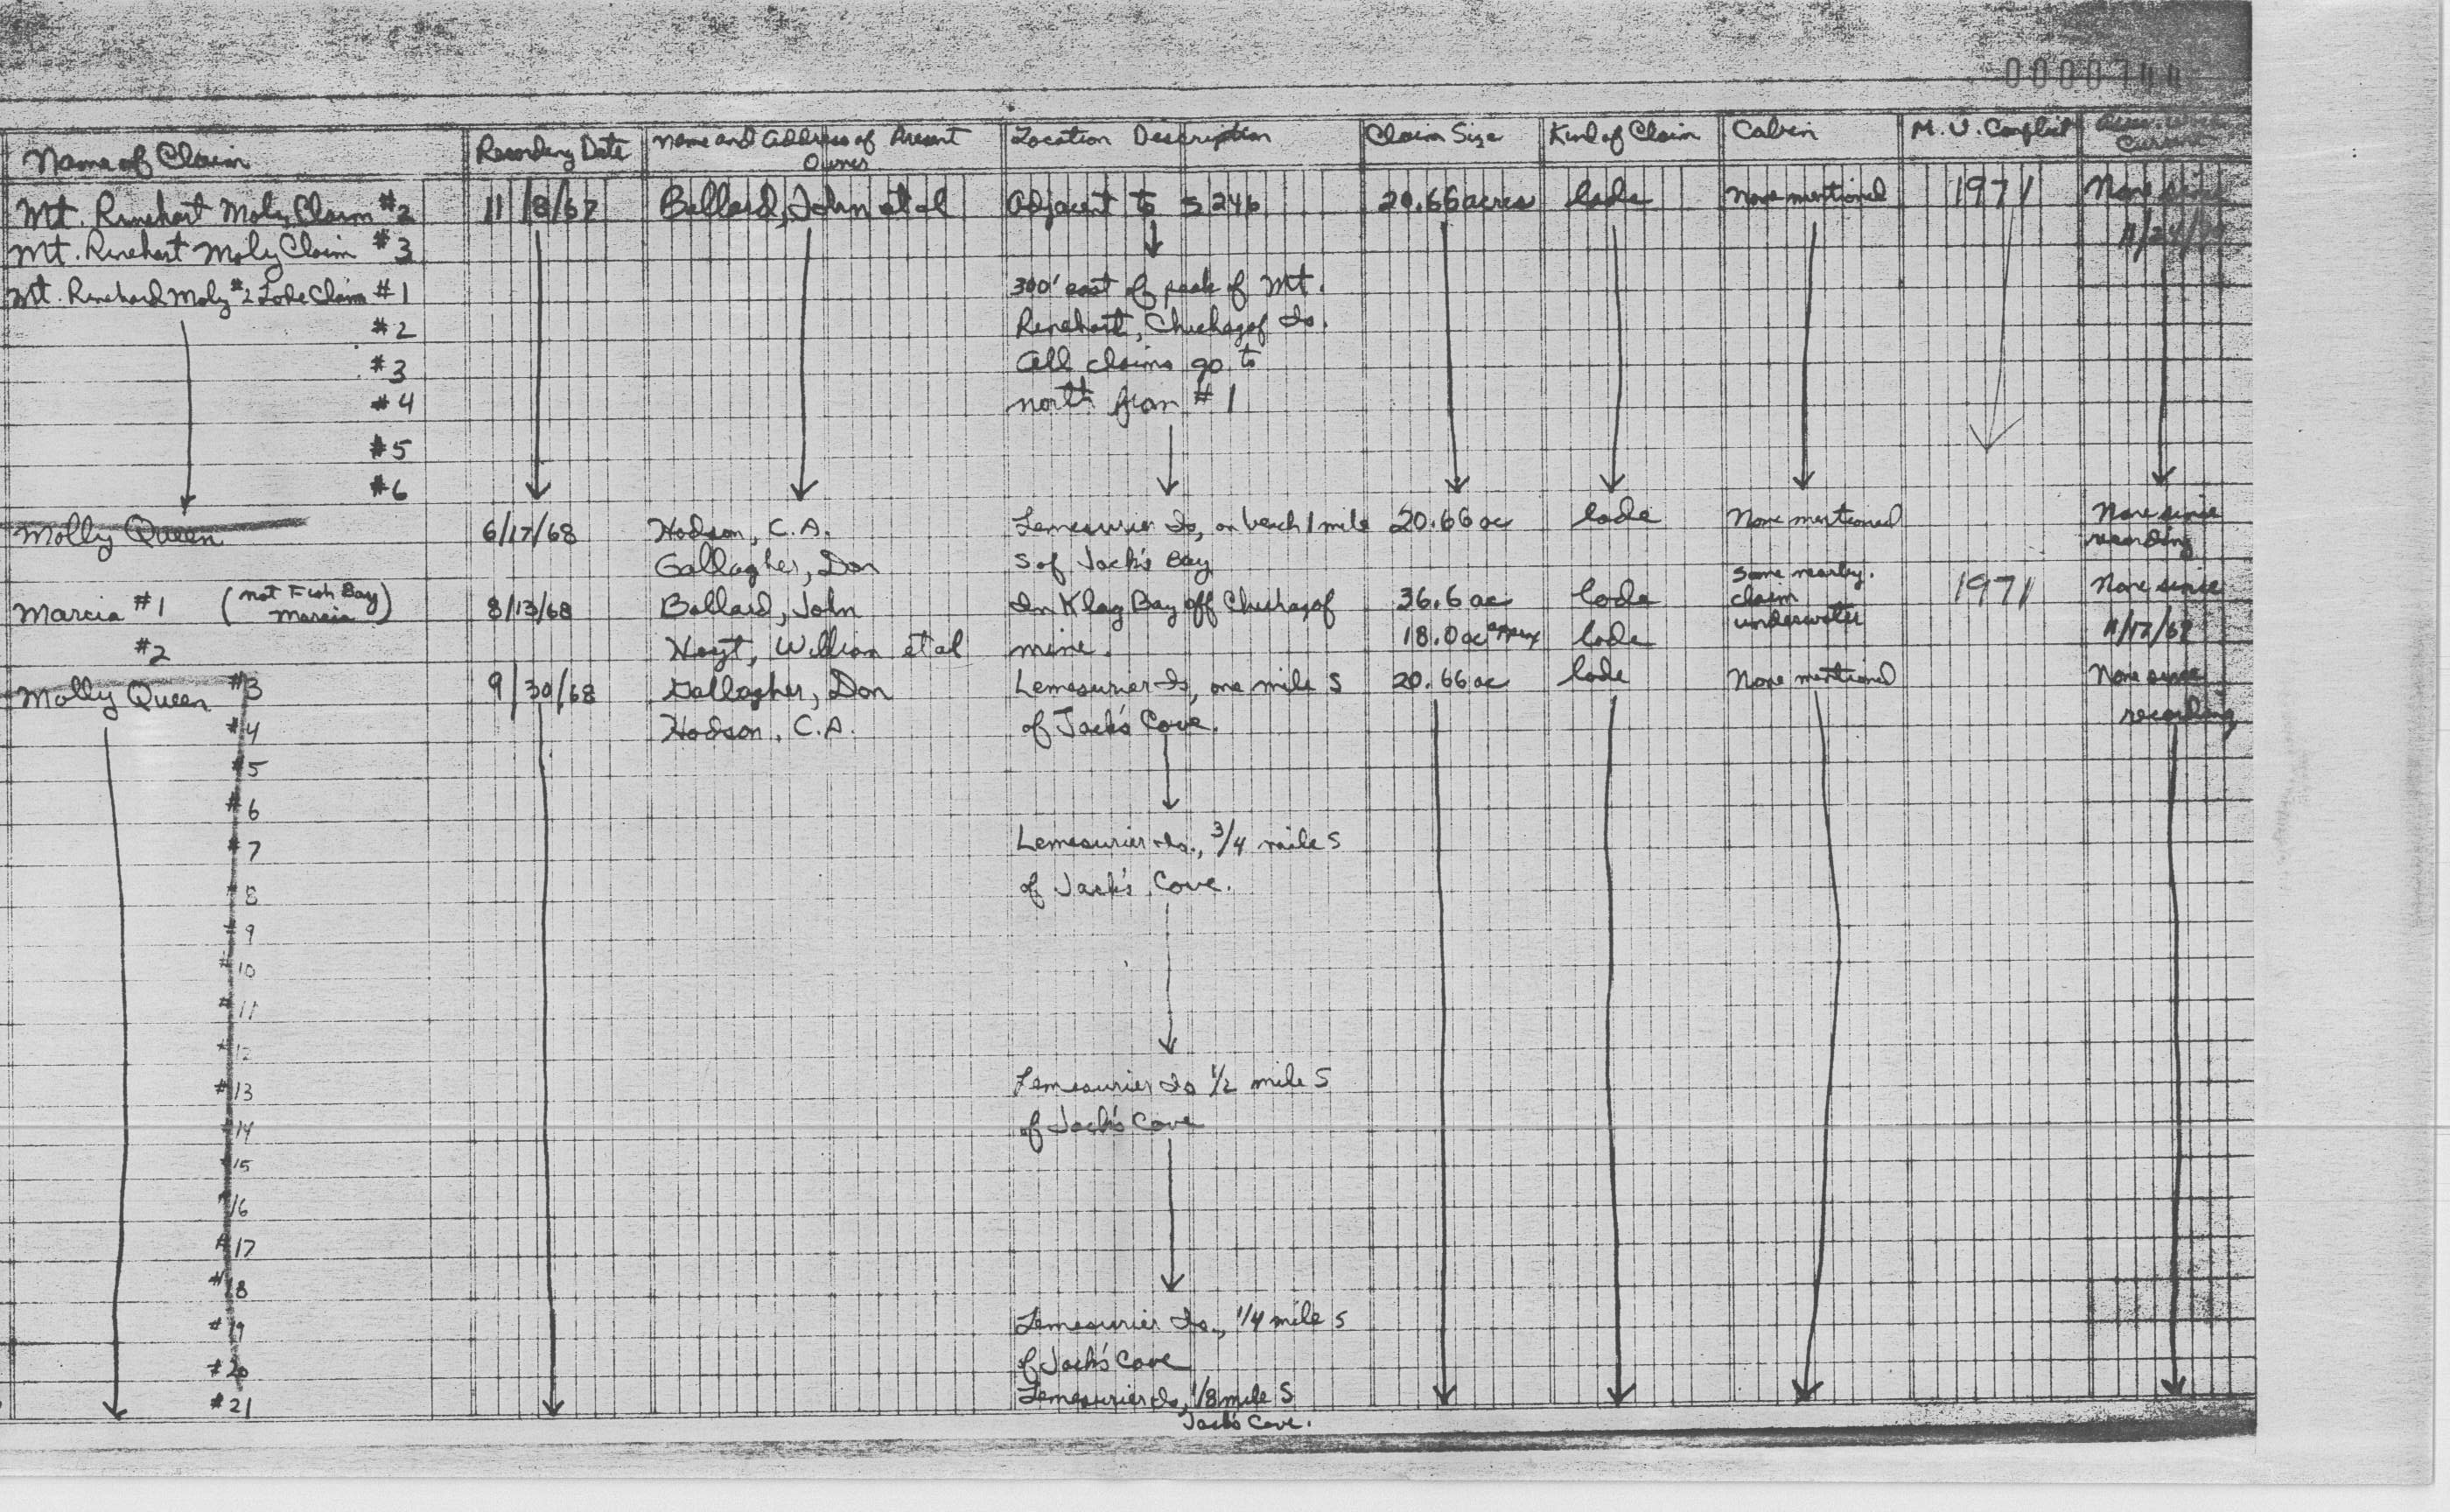 Name of Claim Recording Date Name and Address of Present Owner Location Description Claim Size Kind of Claim Cabin M. U. Conflict Current
Mt. Rinehart Moly Claim #2 11/8/67 Ballard, John et al Adjacent to S 246 20.66 acres lode None mentioned 1971 None since
Mt. Rinehart Moly Claim #3 11/24/
Mt. Rinehard Moly #2 Lode Claim #1 300' east of peak of Mt.
#2 Rinehart, Chichagof Is.
#3 All claims go to
#4 north from #1
#5
#6
Molly Queen 6/17/68 Hodson, C.A. Lemesurier Is, on beach 1 mile 20.66 ac lode None mentioned None since
Gallagher, Don S of Jack's Bay recording
Marcia #1 (not Fish Bay Marcia) 8/13/68 Ballard, John In Klag Bay off Chichagof 36.6 ac lode Some nearby. claim underwater 1971 None since
#2 Hoyt, William et al mine. 18.0 ac approx lode 11/17/69
Molly Queen #3 9/30/68 Gallagher, Don Lemesurier Is, one mile S 20.66 ac lode None mentioned None since
#4 Hodson, C.A. of Jack's Cove. recording
#5
#6
#7 Lemesurier Is., 3/4 mile S
#8 of Jack's Cove.
#9
#10
#11
#12
#13 Lemesurier Is 1/2 mile S
#14 of Jack's Cove
#15
#16
#17
#18
#19 Lemesurier Is., 1/4 mile S
#20 of Jack's Cove
#21 Lemesurier Is, 1/8 mile S
Jack's Cove.